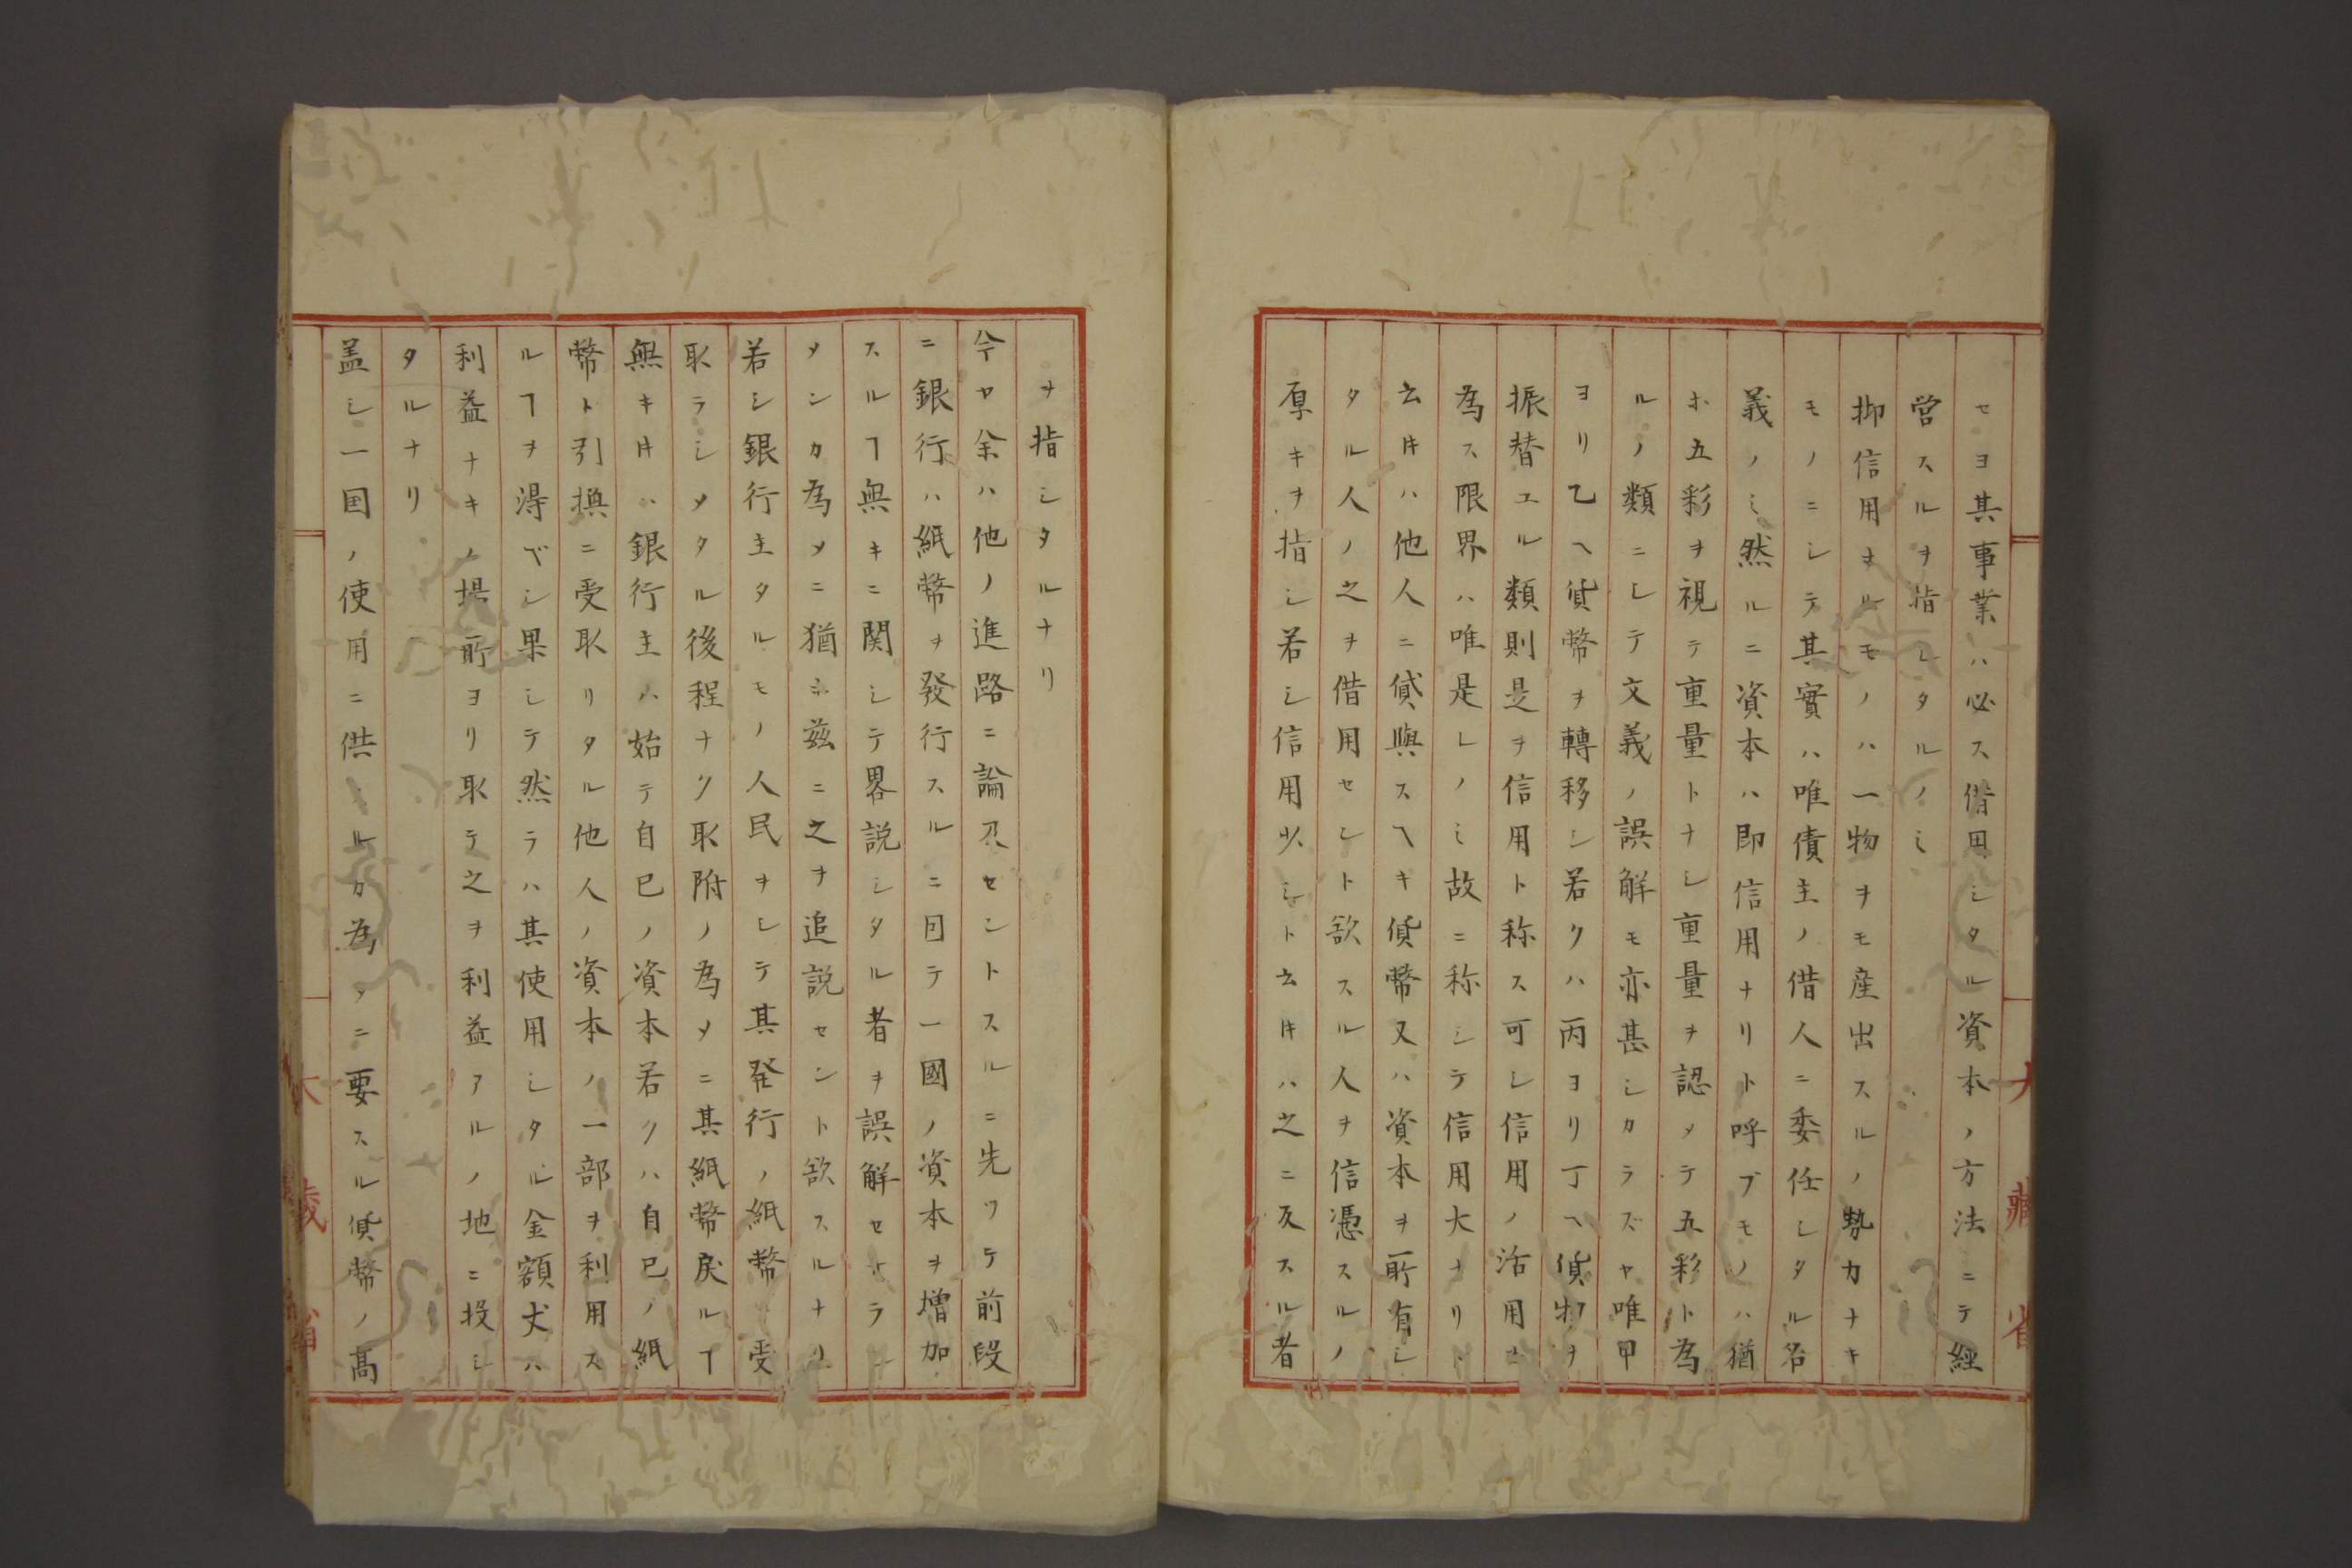 セヨ其事業ハ必ス借用シタル資本ノ方法ニテ經
営スルヲ指シタルノミ
抑信用ナルモノハ一物ヲモ産出スルノ勢力ナキ
モノニシテ其實ハ唯債主ノ借人ニ委任シタル名
義ノミ然ルニ資本ハ即信用ナリト呼ブモノハ猶
ホ五彩ヲ視テ重量トナシ重量ヲ認メテ五彩ト為
ルノ類ニシテ文義ノ誤解モ亦甚シカラズヤ唯甲
ヨリ乙ヘ貨幣ヲ轉移シ若クハ丙ヨリ丁ヘ貨物ヲ
振替エル類則是ヲ信用ト称ス可シ信用ノ活用ヲ
為ス限界ハ唯是レノミ故ニ称シテ信用大ナリト
云𪜈ハ他人ニ貸與スヘキ貨幣又ハ資本ヲ所有シ
タル人ノ之ヲ借用セシト欲スル人ヲ信憑スルノ
厚キヲ指シ若シ信用少シト云𪜈ハ之ニ反スル者
ヲ指シタルナリ
今ヤ余ハ他ノ進路ニ論及セントスルニ先ツテ前段
ニ銀行ハ紙幣ヲ發行スルニ因テ一國ノ資本ヲ増加
スルヿ無キニ関シテ畧説シタル者ヲ誤解セサラシ
メンカ為メニ猶ホ茲ニ之ヲ追説セント欲スルナリ
若シ銀行主タルモノ人民ヲシテ其発行ノ紙幣ヲ受
取ラシメタル後程ナク取附ノ為メニ其紙幣戻ルヿ
無キ𪜈ハ銀行主ハ始テ自己ノ資本若クハ自己ノ紙
幣ト引換ニ受取リタル他人ノ資本ノ一部ヲ利用ス
ルヿヲ得ベシ果シテ然ラハ其使用シタル金額丈ハ
利益ナキノ場所ヨリ取テ之ヲ利益アルノ地ニ投シ
タルナリ
盖シ一国ノ使用ニ供スルカ為メニ要スル貨幣ノ高
大藏省